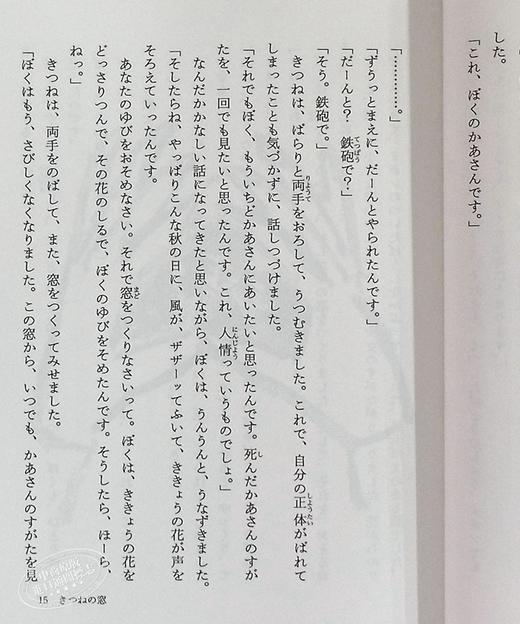 した。
「これ、ぼくのかあさんです。」
「…………。」
「ずうっとまえに、だーんとやられたんです。」
「だーんと？　鉄砲で？」
「そう。鉄砲で。」
きつねは、ぱらりと両手をおろして、うつむきました。これで、自分の正体がばれて
しまったことも気づかずに、話しつづけました。
「それでもぼく、もういちどかあさんにあいたいと思ったんです。死んだかあさんのすが
たを、一回でも見たいと思ったんです。これ、人情っていうものでしょ。」
なんだかかなしい話になってきたと思いながら、ぼくは、うんうんと、うなずきました。
「そしたらね、やっぱりこんな秋の日に、風が、ザザーッてふいて、ききょうの花が声を
そろえていったんです。
あなたのゆびをおそめなさい。それで窓をつくりなさいって。ぼくは、ききょうの花を
どっさりつんで、その花のしるで、ぼくのゆびをそめたんです。そうしたら、ほーら、
ねっ。」
きつねは、両手をのばして、また、窓をつくってみせました。
「ぼくはもう、さびしくなくなりました。この窓から、いつでも、かあさんのすがたを見
15　きつねの窓